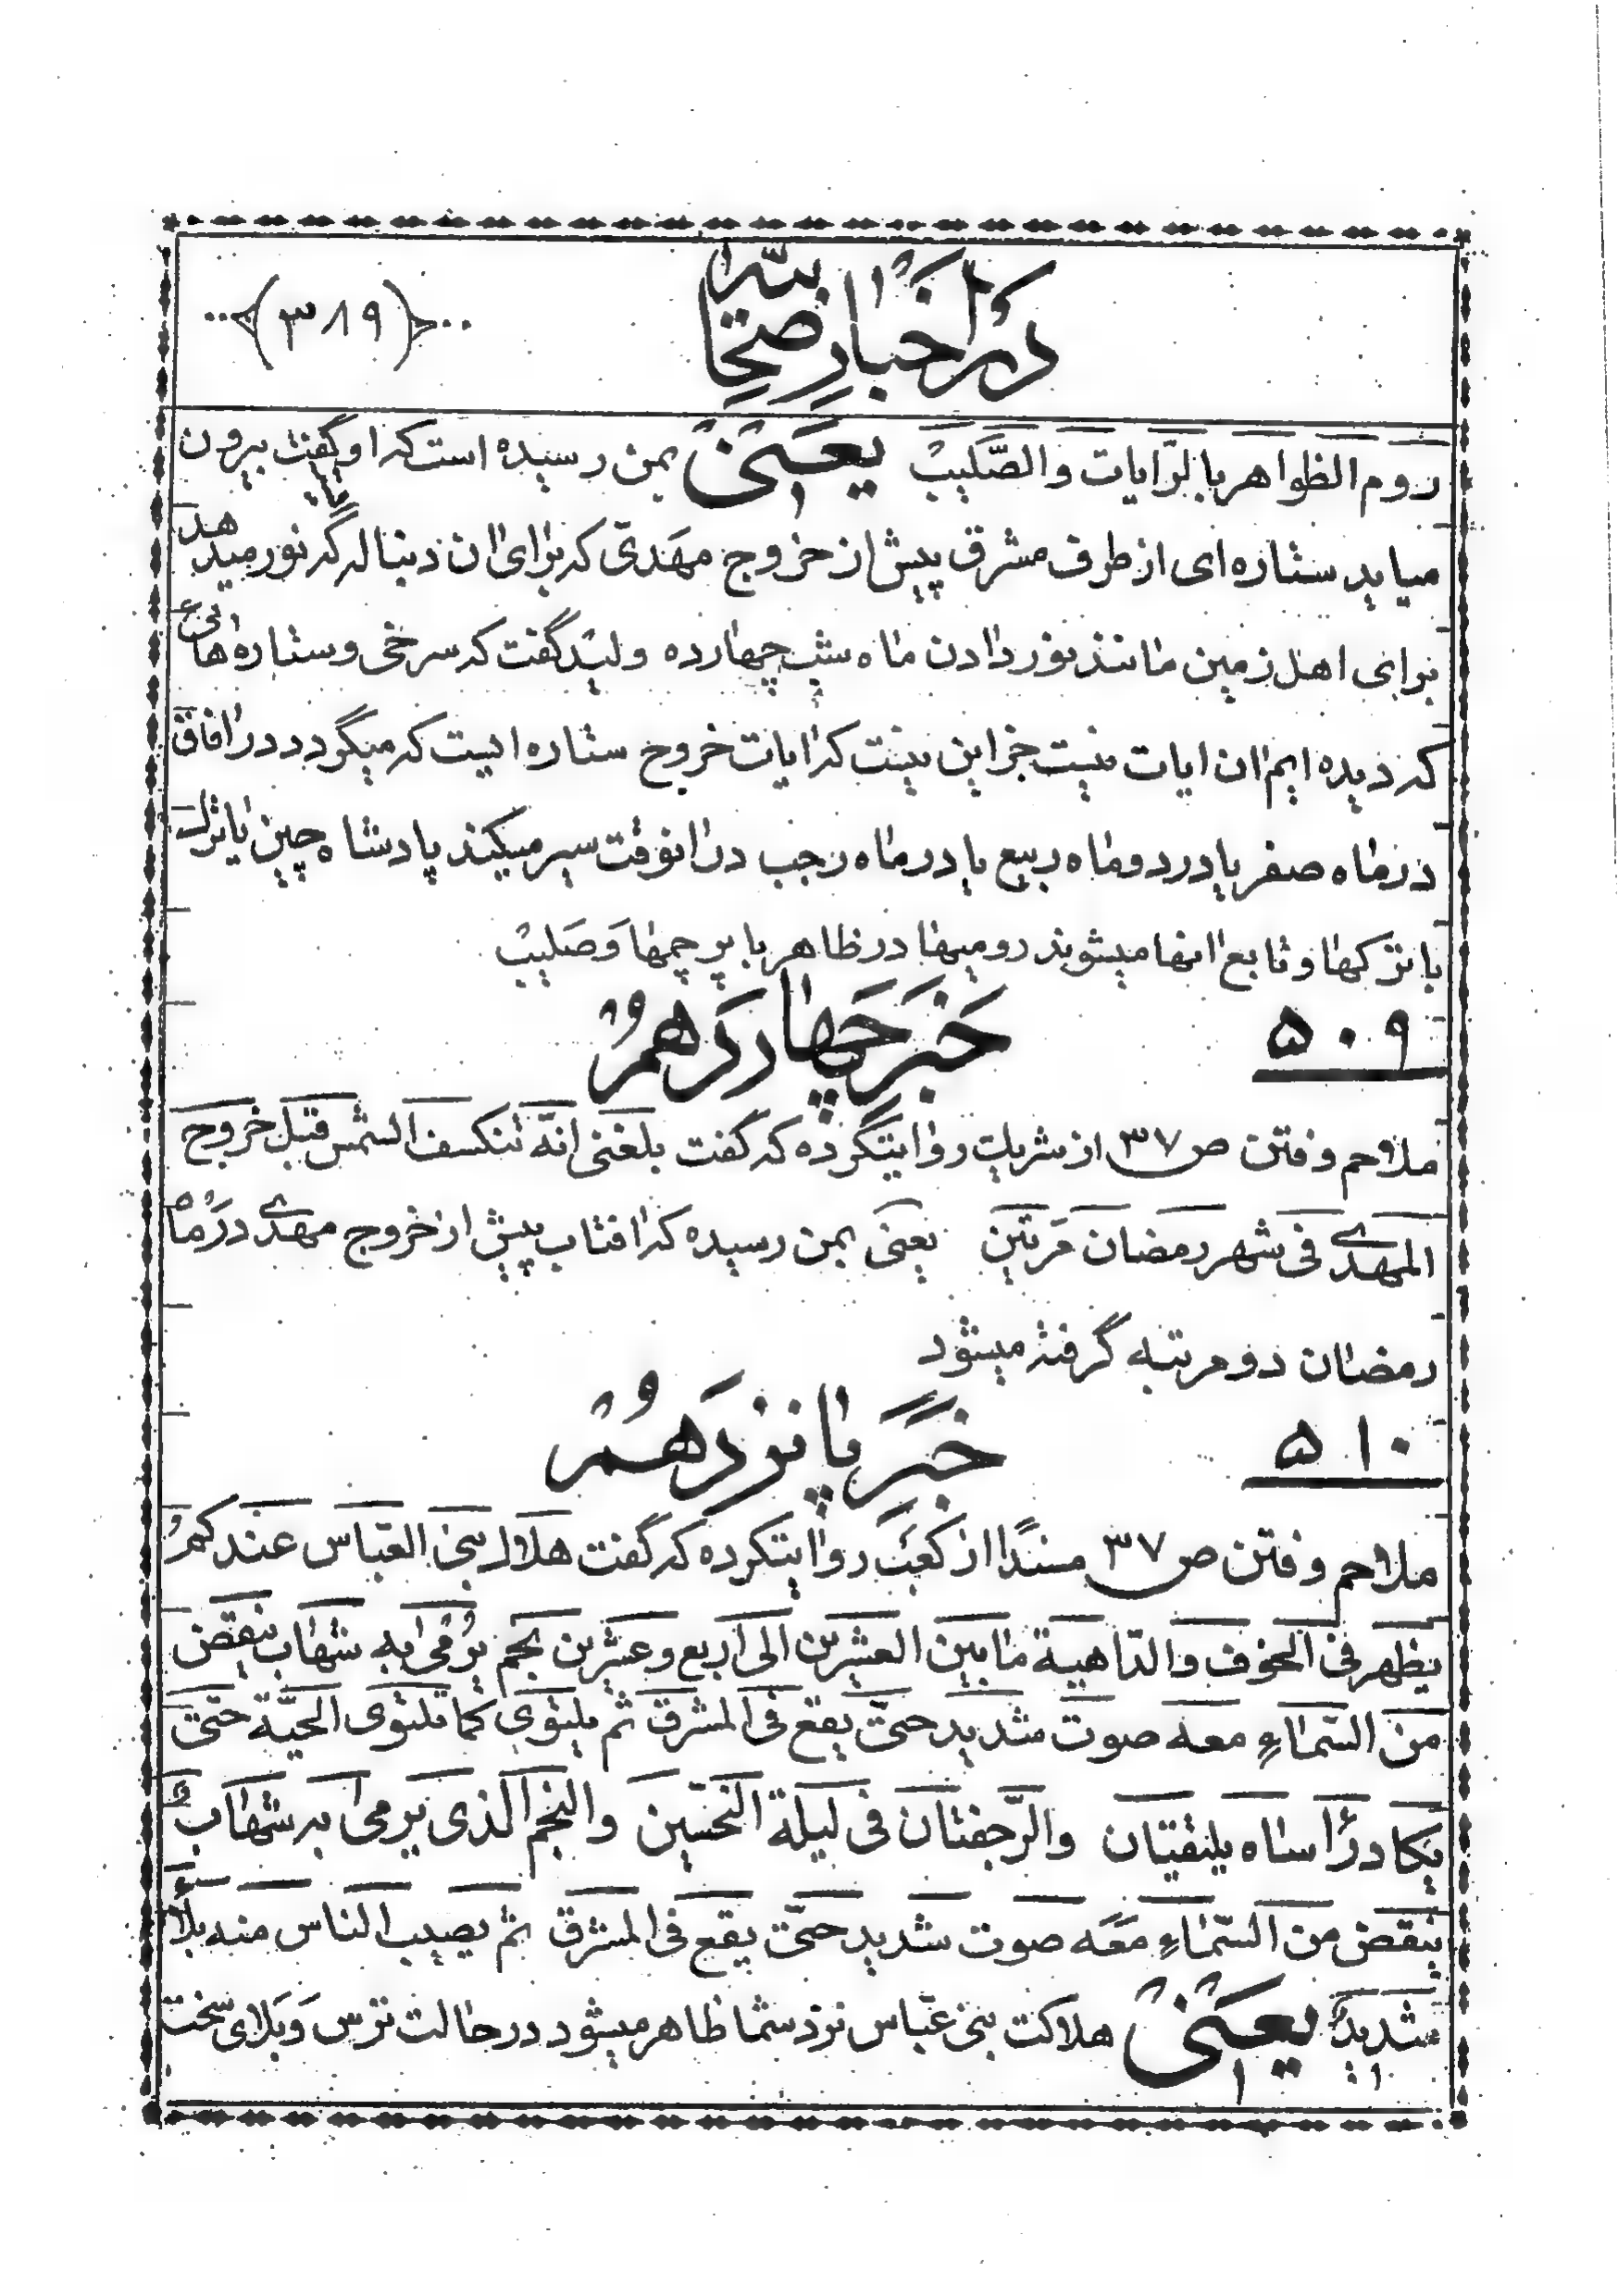 در اخبار صحابه
(۳۸۹)
روم الظواهر بالرّایات والصَّلیب یعنی بمن رسیده است که او گفت بیرون
میاید ستاره‌ای از طرف مشرق پیش از خروج مهدی که برای ان دنباله‌ایکه نور میدهد
برای اهل زمین مانند نور دادن ماه شب چهارده ولید گفت که سرخی و ستاره‌هائی
که دیده ایم ان ایات نیست جز این نیست که ایات خروج ستاره ایست که میگردد در افاق
در ماه صفر یا در دو ماه ربیع یا در ماه رجب در انوقت سیر میکند پادشاه چین یا ترک
با ترکها و تابع انها میشوند رومیها در ظاهر با پرچمها و صلیب
۵۰۹ خبر چهاردهم
ملاحم و فتن ص ۳۷ از شریک روایتکرده که گفت بلغنی انّه تنکسف الشمس قبل خروج
المهدی فی شهر رمضان مرتین یعنی بمن رسیده که افتاب پیش از خروج مهدی در ماه
رمضان دو مرتبه گرفته میشود
۵۱۰ خبر پانزدهم
ملاحم و فتن ص ۳۷ مسنداً از کعب روایتکرده که گفت هلاک بنی العبّاس عند کم
یظهر فی الخوف والدّاهیة ما بین العشرین الی اربع و عشرین نجم یُرمی به شهاب ینقض
من السّماءِ معه صوت شدید حتّی یقع فی المشرق ثم یلتوی کما تلتوی الحیّة حتّی
یکاد رأساه یلتقیان والرّجفتان فی لیلة النحسین والنجم الذی یرمی به شهاب
ینقض من السّماءِ معه صوت شدید حتّی یقع فی المشرق ثم یصیب الناس منه بلاء
شدید یعنی هلاکت بنی عبّاس نزد شما ظاهر میشود در حالت ترس و بلای سخت